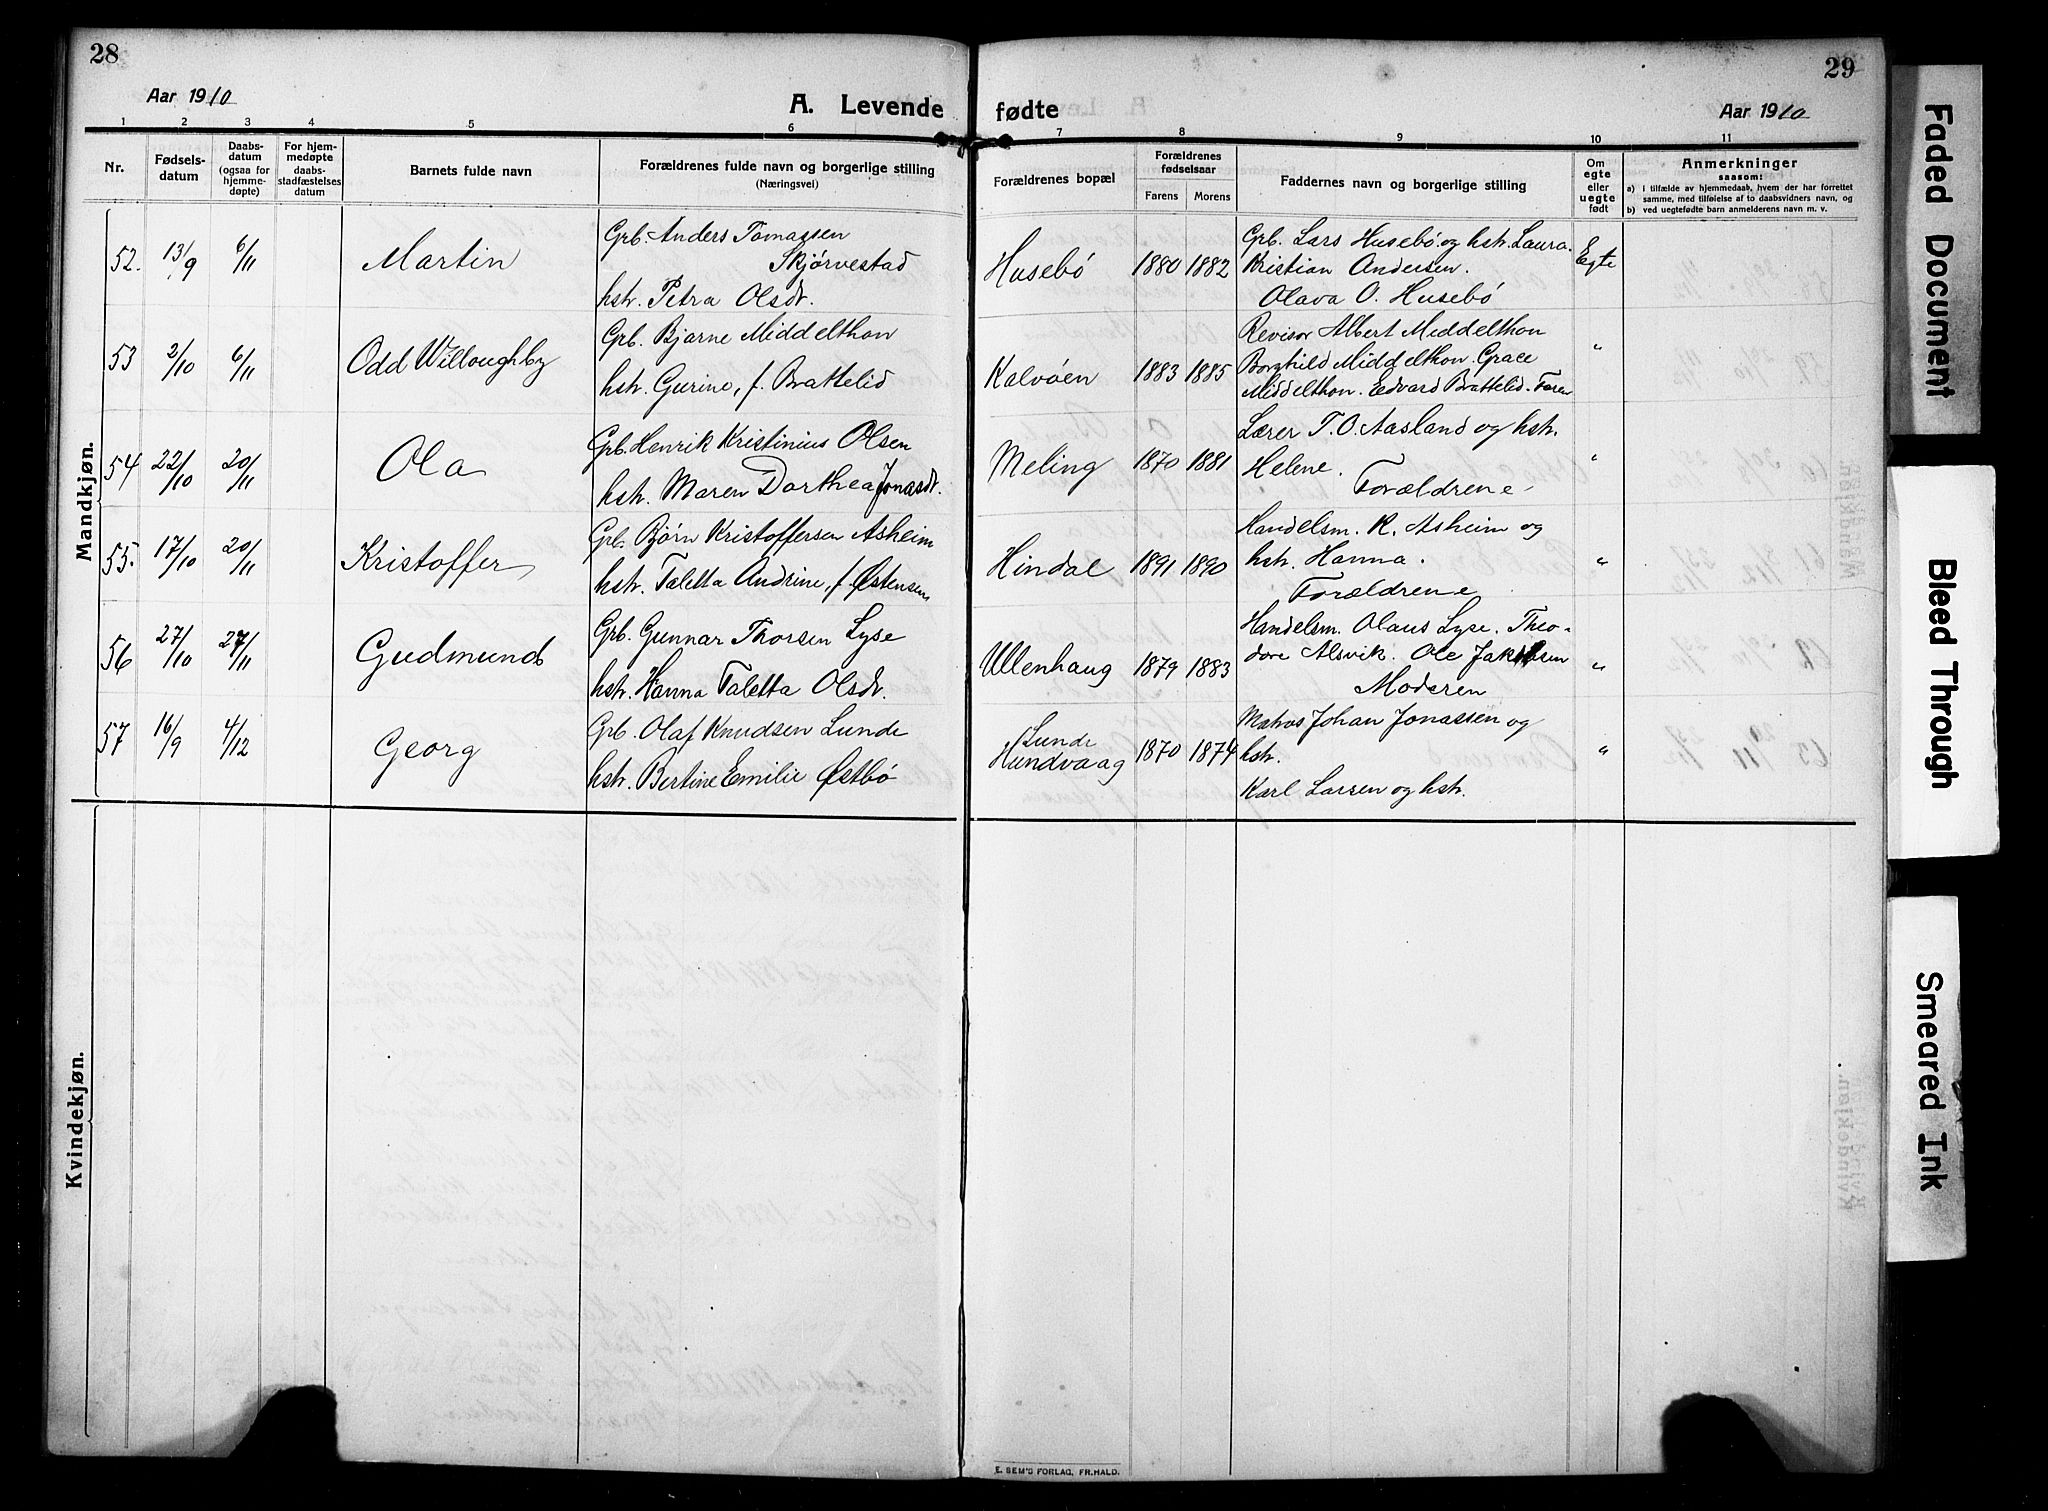 28
Aar 1910
A. Levende
1 2 3 4 5 6
Nr.
Fødsels-
datum
Daabs-
datum
(ogsaa for
hjemme-
døpte)
For hjem-
medøpte
daabs-
stadfæstelses
datum
Barnets fulde navn
Forældrenes fulde navn og borgerlige stilling
(Næringsvei)
Mandkjøn.
52. 13/9 6/11 Martin
Grb. Anders Tomassen
Skjørvestad
hstr. Petra Olsdt.
53 2/10 6/11 Odd Willoughby
Grb. Bjarne Middelthon
hstr. Gurine, f. Brattelid
54 22/10 20/11 Ola
Grb. Henrik Kristinius Olsen
hstr. Maren Dorthea Jonasdt.
55. 17/10 20/11 Kristoffer
Grb. Bjørn Kristoffersen Asheim
hstr. Taletta Andrine, f. Østensen
56 27/10 27/11 Gudmund
Grb. Gunnar Thorsen Lyse
hstr. Hanna Taletta Olsdt.
57 16/9 4/12 Georg
Grb. Olaf Knudsen Lunde
hstr. Bertine Emilie Østbö
Kvindekjøn.
29
fødte
Aar 1910
7 8 9 10 11
Forældrenes bopæl
Forældrenes
fødselsaar
Farens Morens
Faddernes navn og borgerlige stilling
Om
egte
eller
uegte
født
Anmerkninger
saasom:
a) i tilfælde av hjemmedaab, hvem der har forrettet
samme, med tilføielse af to daabsvidners navn, og
b) ved uegtefødte barn anmelderens navn m. v.
Husebö 1880 1882
Grb. Lars Husebö og hstr. Laura.
Kristian Andersen.
Olava O. Husebö
Egte
Kalvøen 1883 1885
Revisor Albert Middelthon
Borghild Middelthon. Grace
Middelthon. Edvard Brattelid. Faren
"
Meling 1870 1881
Lærer T. O. Aasland og hstr.
Helene.
Forældrene
"
Hindal 1891 1890
Handelsm. K. Asheim og
hstr. Hanna.
Forældrene
"
Ullenhaug 1879 1883
Handelsm. Olaus Lyse. Theo-
dore Alsvik. Ole Jakobsen
Moderen
"
Lunde
Hundvaag 1870 1874
Matros Johan Jonassen og
hstr.
Karl Larsen og hstr.
"
E. SEM'S FORLAG, FR.HALD.
Faded Document
Bleed Through
Smeared Ink